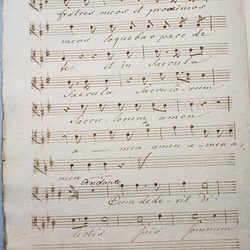 fratres meos et proximos
meos loquebar pace de
te et in Saecula
Saecula Saeculorum
Saecu- lorum amen
a - men, amen a-men a
men Andante
Cum dede- rit di
lectis suis somnum